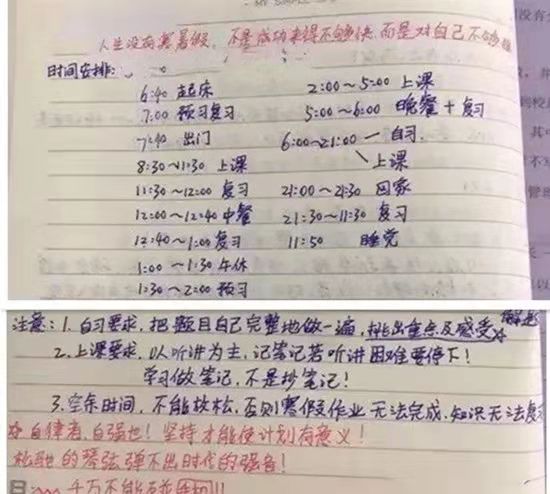 人生没有寒暑假,不是成功来得不够快,而是对自己不够狠
时间安排:
6:40 起床
7:00 预习复习
7:40 出门
8:30~11:30 上课
11:30~12:00 复习
12:00~12:40 中餐
12:40~1:00 复习
1:00~1:30 午休
1:30~2:00 预习
2:00~5:00 上课
5:00~6:00 晚餐+复习
6:00~21:00 自习
上课
21:00~21:30 回家
21:30~11:30 复习
11:50 睡觉
注意:1.自习要求,把题目自己完整地做一遍,挑出重点及感受
2.上课要求,以听讲为主,记笔记若听讲困难要停下!
学习做笔记,不是抄笔记!
3.空余时间,不能放松,否则寒假作业无法完成,知识无法复
自律者,自强也!坚持才能使计划有意义!
松驰的琴弦弹不出时代的强音!
千万不能